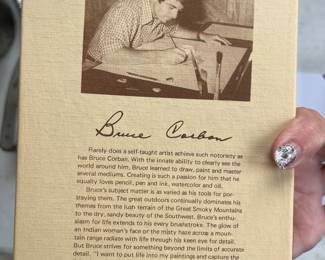 Bruce Corban
Rarely does a self-taught artist achieve such notoriety as
has Bruce Corban. With the innate ability to clearly see the
world around him, Bruce learned to draw, paint and master
several mediums. Creating is such a passion for him that he
equally loves pencil, pen and ink, watercolor and oil.
Bruce's subject matter is as varied as his tools for por-
traying them. The great outdoors continually dominates his
themes from the lush terrain of the Great Smoky Mountains
to the dry, sandy beauty of the Southwest. Bruce's enthu-
siasm for life extends to his every brushstroke. The glow of
an Indian woman's face or the misty haze across a moun-
tain range radiate with life through his keen eye for detail.
But Bruce strives for something beyond the limits of accurate
detail. "I want to put life into my paintings and capture the